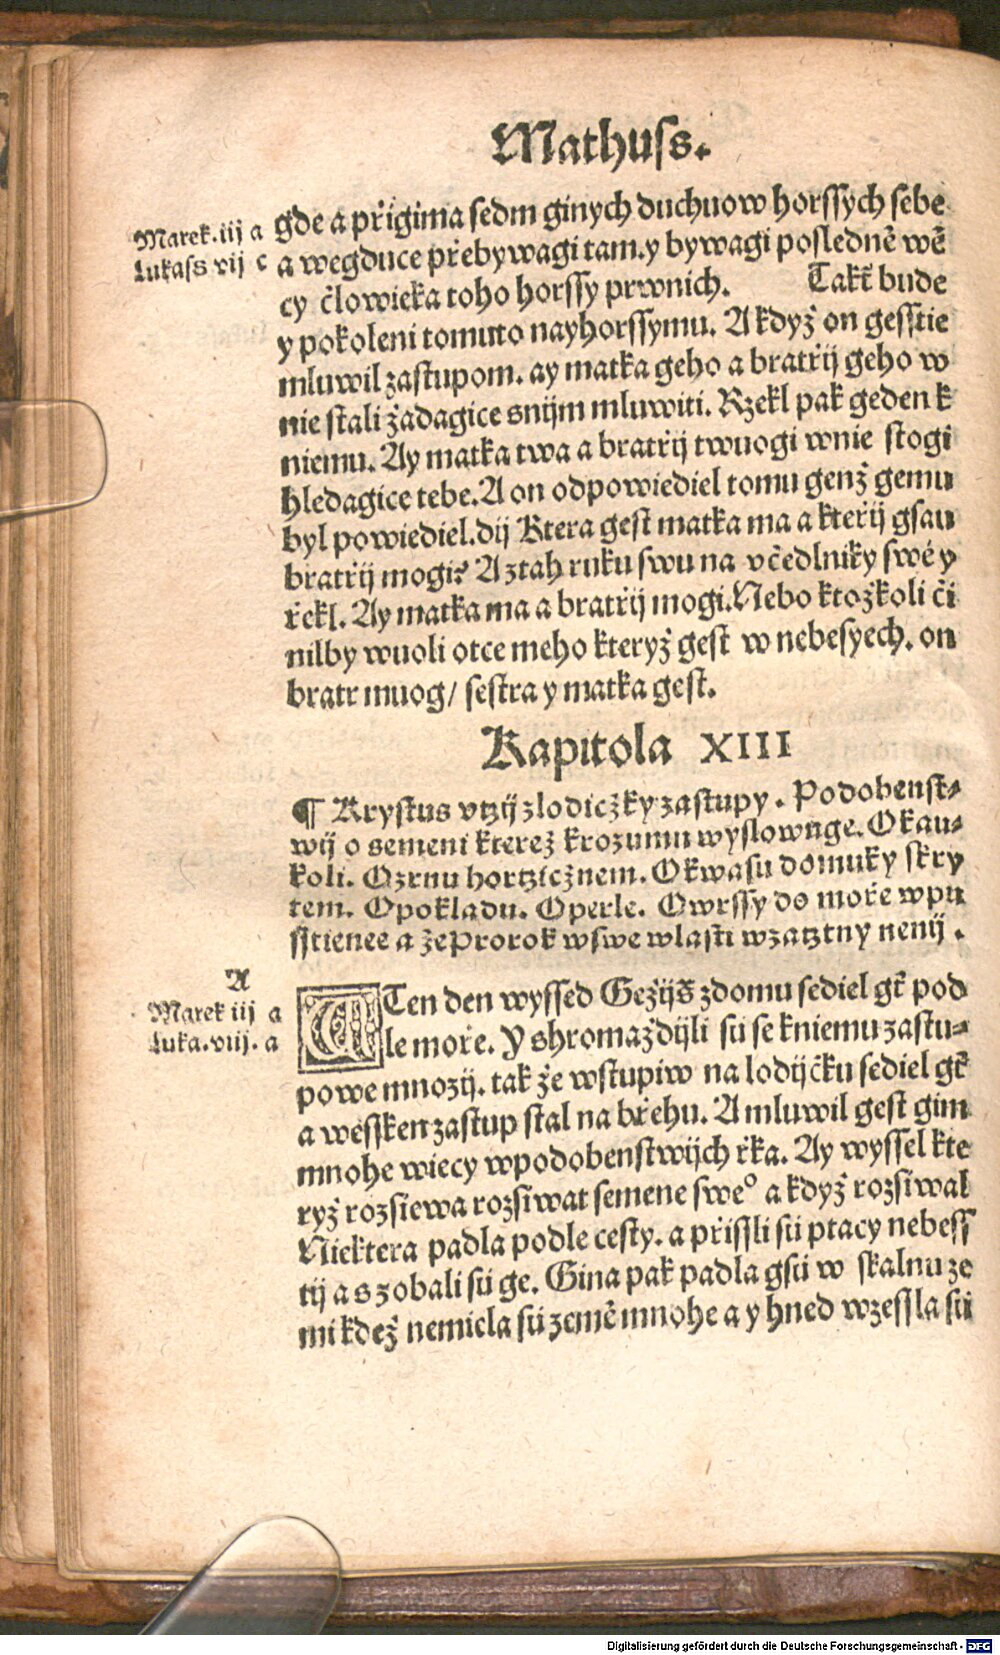 Mathuss.
Marek.iij a
Lukass vij c
gde a přigima sedm ginych duchuow horssych sebe
a wegduce přebywagi tam. y bywagi poslednē wē
cy člowieka toho horssy prwnich. Takt̄ bude
y pokoleni tomuto nayhorssymu. A když on gesstie
mluwil zastupom. ay matka geho a bratřij geho w
nie stali žadagice snijm mluwiti. Rzekl pak geden k
niemu. Ay matka twa a bratřij twuogi wnie stogi
hledagice tebe. A on odpowiediel tomu genž gemu
byl powiediel. dij Ktera gest matka ma a kteřij gsau
bratřij mogi? A ztah ruku swu na včedlniky swé y
řekl. Ay matka ma a bratřij mogi. Nebo ktožkoli či
nilby wuoli otce meho kteryž gest w nebesyech. on
bratr muog / sestra y matka gest.
Kapitola XIII
¶ Krystus vtzij zlodiczky zastupy. Podobenst⸗
wij o semeni kterež krozumu wyslownge. Okau⸗
koli. Ozrnu hortzicžnem. Okwasu domuky skry
tem. Opokladu. Operle. Owrssy do moře wpu
sstienee a žeProrok wswe wlasti wzatztny nenij.
A
Marek iij a
Luka.viij. a
WTen den wyssed Gežijš zdomu sediel gt̄ pod
le moře. Y shromaždijli sū se kniemu zastu⸗
powe mnozij. tak že wstupiw na lodijčku sediel gt̄
a wessken zastup stal na břehu. A mluwil gest gim
mnohe wiecy wpodobenstwijch řka. Ay wyssel kte
ryž rozsiewa rozsiwat semene sweº a když rozsiwal
Niektera padla podle cesty. a přissli sū ptacy nebess
tij a szobali sū ge. Gina pak padla gsū w skalnu ze
mi kdež nemiela sū zemē mnohe a y hned wzessla sū
Digitalisierung gefördert durch die Deutsche Forschungsgemeinschaft - DFG